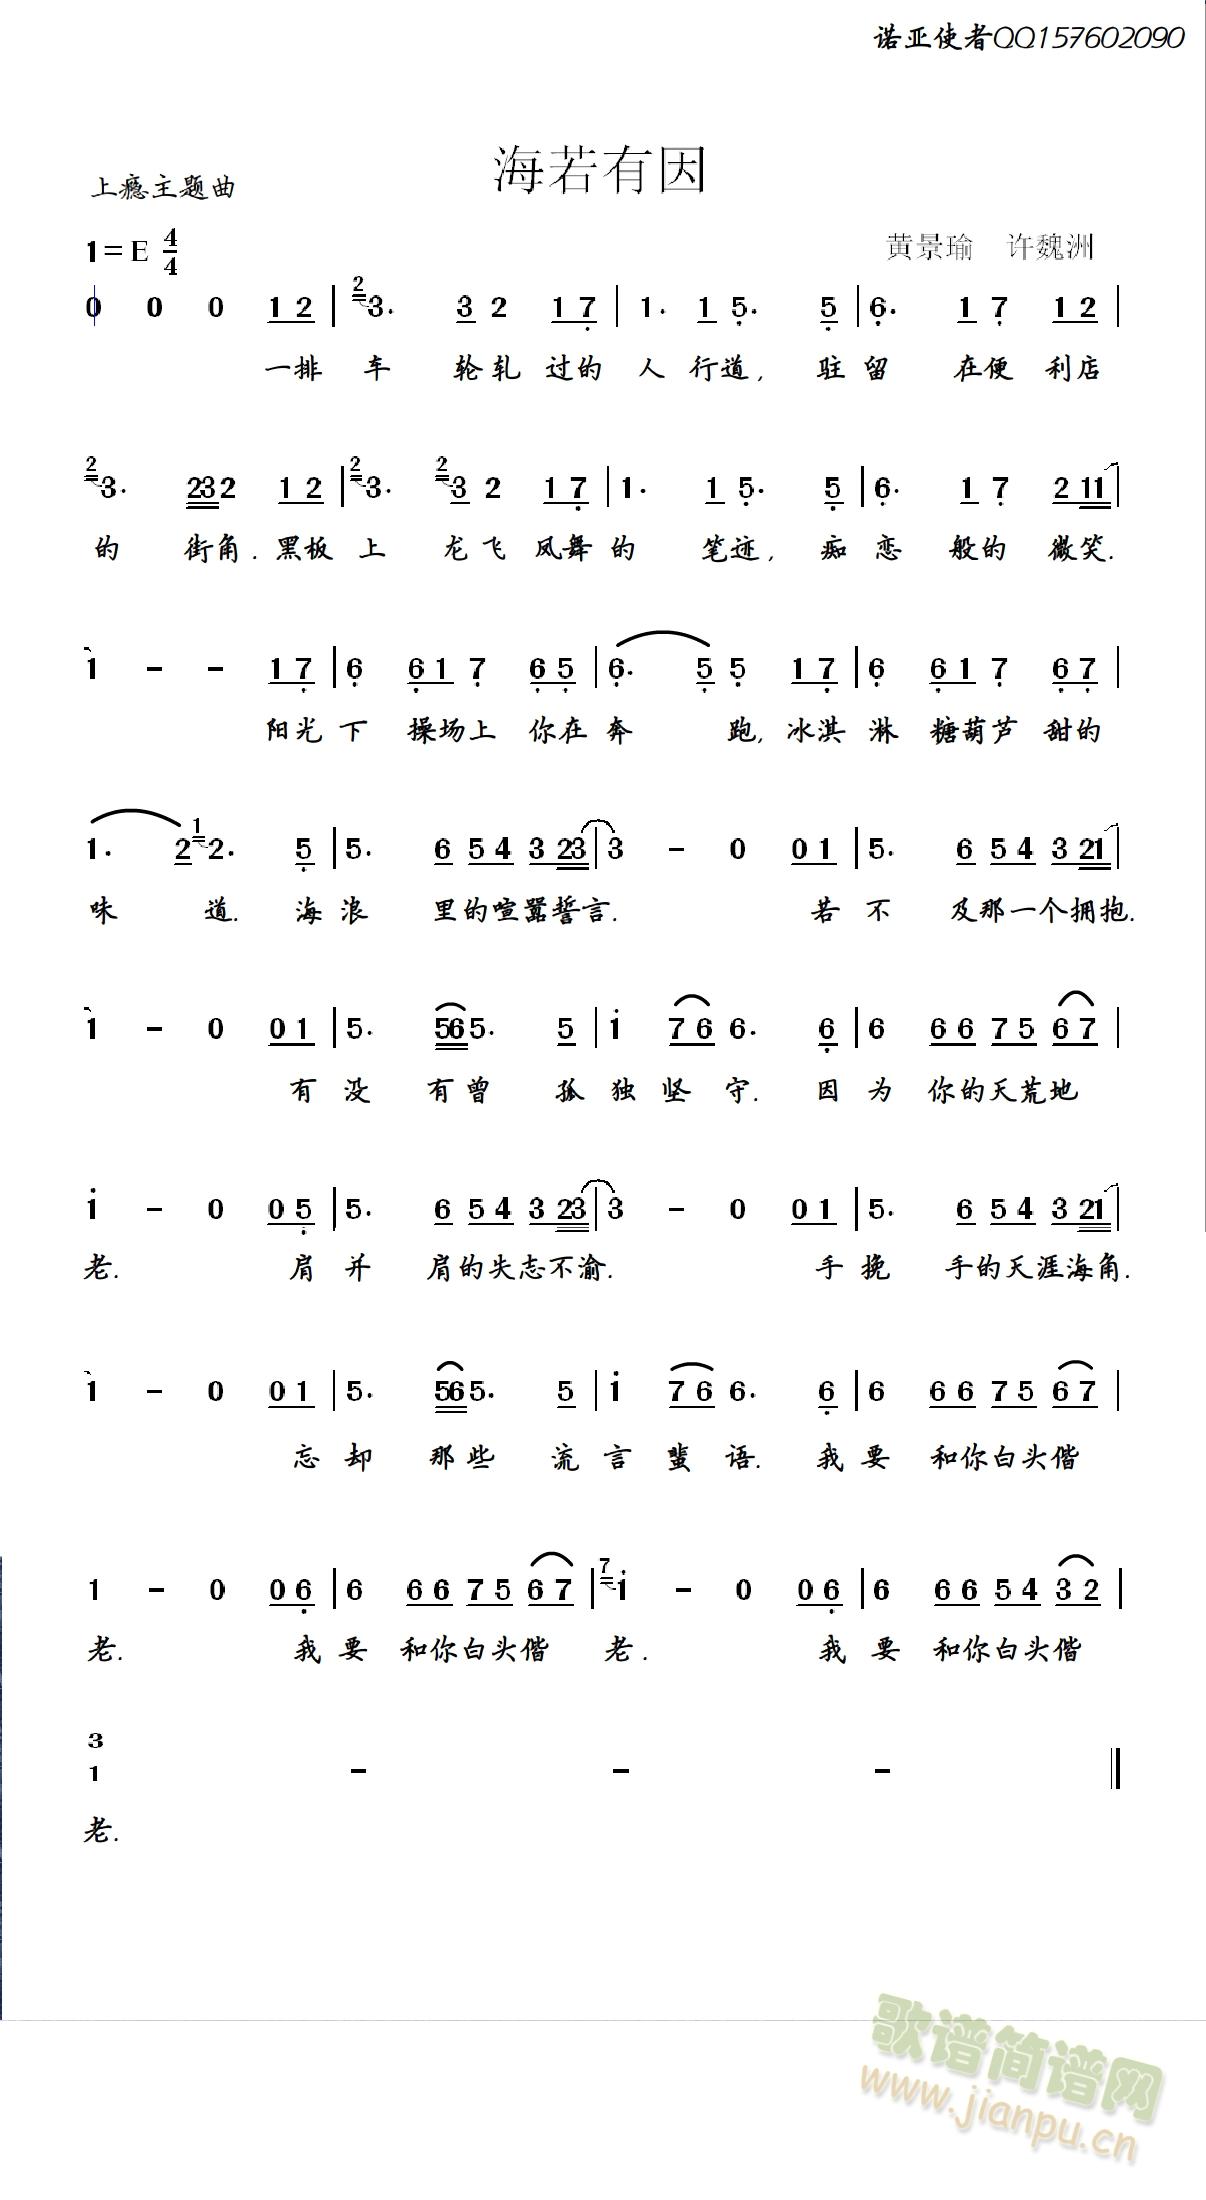 诺亚使者QQ157602090
海若有因
上瘾主题曲
1=E 4/4
黄景瑜 许魏洲
0 0 0 1 2 | 2 3. 3 2 1 7 | 1. 1 5. 5 | 6. 1 7 1 2 |
一排 车 轮轧 过的 人 行道, 驻 留 在便 利店
2 3. 2 3 2 1 2 | 2 3. 2 3 2 1 7 | 1. 1 5. 5 | 6. 1 7 2 1 1 |
的 街角. 黑板 上 龙飞凤舞的 笔迹, 痴 恋 般的 微笑.
1 - - 1 7 | 6 6 1 7 6 5 | 6. 5 5 1 7 | 6 6 1 7 6 7 |
阳光 下 操场上 你在 奔 跑, 冰淇 淋 糖葫芦 甜的
1. 2 1 2. 5 | 5. 6 5 4 3 2 3 | 3 - 0 0 1 | 5. 6 5 4 3 2 1 |
味 道. 海 浪 里的喧嚣誓言. 若 不 及那一个拥抱.
1 - 0 0 1 | 5. 5 6 5. 5 | 1 7 6 6. 6 | 6 6 6 7 5 6 7 |
有 没 有曾 孤 独 坚 守. 因 为 你的天荒地
1 - 0 0 5 | 5. 6 5 4 3 2 3 | 3 - 0 0 1 | 5. 6 5 4 3 2 1 |
老. 肩 并 肩的失志不渝. 手 挽 手的天涯海角.
1 - 0 0 1 | 5. 5 6 5. 5 | 1 7 6 6. 6 | 6 6 6 7 5 6 7 |
忘 却 那些 流 言 蜚 语. 我 要 和你白头偕
1 - 0 0 6 | 6 6 6 7 5 6 7 | 7 1 - 0 0 6 | 6 6 6 5 4 3 2 |
老. 我 要 和你白头偕 老. 我 要 和你白头偕
3
1 - - - ‖
老.
歌谱简谱网
www.jianpu.cn